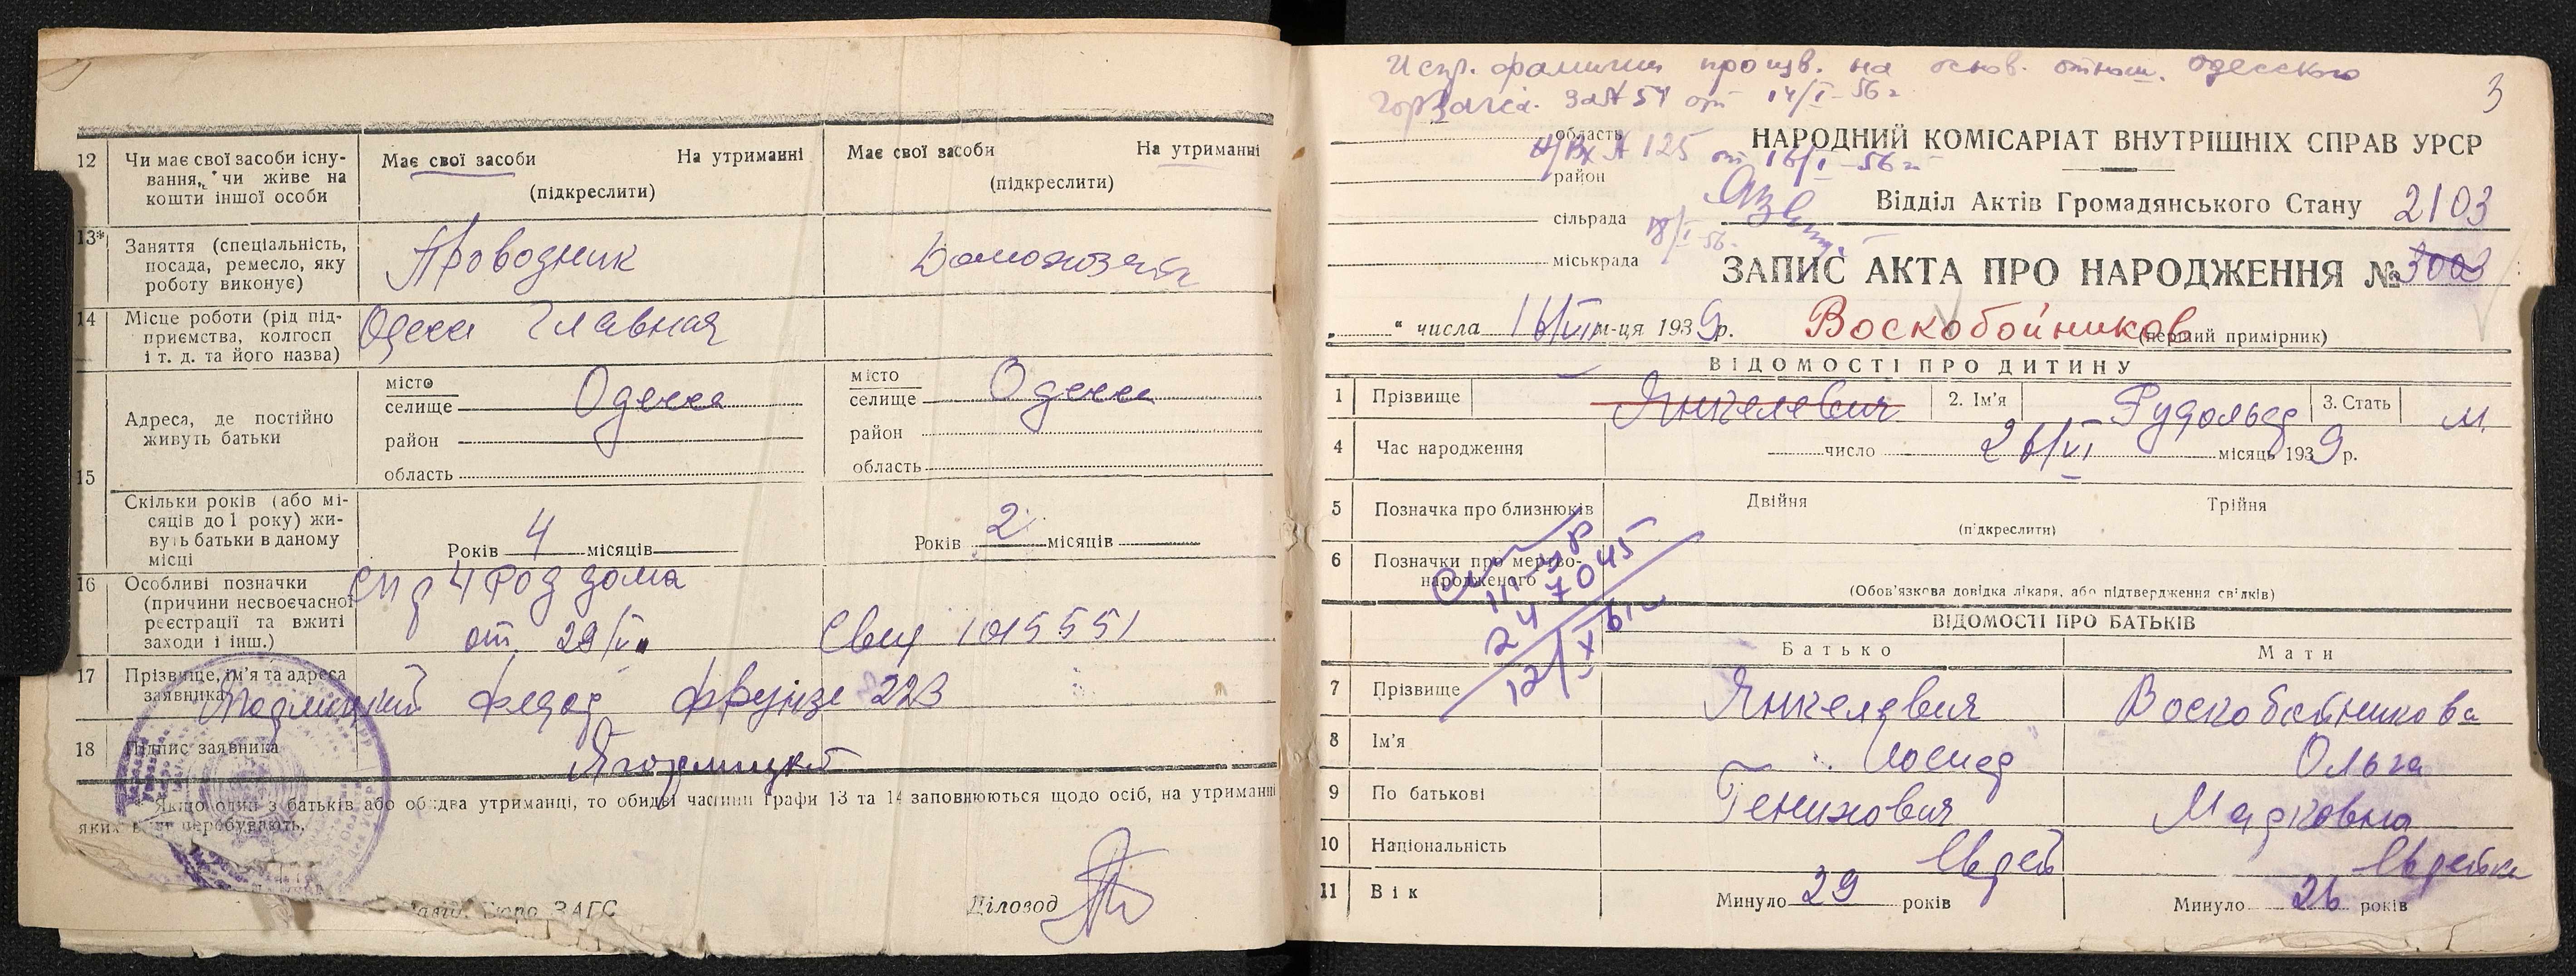 12 Чи має свої засоби існу-
вання, чи живе на
кошти іншої особи
Має свої засоби На утриманні
(підкреслити)
Має свої засоби На утриманні
(підкреслити)
13* Заняття (спеціальність,
посада, ремесло, яку
роботу виконує)
Проводник
Домохоз
14 Місце роботи (рід під-
приємства, колгосп
і т. д. та його назва)
Одесса Главная
15 Адреса, де постійно
живуть батьки
місто
селище Одесса
район
область
місто
селище Одесса
район
область
Скільки років (або мі-
сяців до 1 року) жи-
вуть батьки в даному
місці
Років 4 місяців
Років 2 місяців
16 Особливі позначки
(причини несвоєчасної
реєстрації та вжиті
заходи і інш.)
4 Род дома
от 29/VI
1015551
17 Прізвище, ім'я та адреса
заявника
Фрунзе 223
18 Підпис заявника
Якщо один з батьків або обидва утриманці, то обидві частини графи 13 та 14 заповнюються щодо осіб, на утриманні
яких вони перебувають.
Бюро ЗАГС
Діловод
Испр. фамилии произв. на основ. отнош. Одесского
Горзагса за № 51 от 14/I-56 г
3
область
Вх № 125 от 16/I-56 г
район
сільрада
18/I-56.
міськрада
НАРОДНИЙ КОМІСАРІАТ ВНУТРІШНІХ СПРАВ УРСР
Відділ Актів Громадянського Стану 2103
ЗАПИС АКТА ПРО НАРОДЖЕННЯ № 3003
" числа 16/VII м-ця 1939 р. Воскобойников
(перший примірник)
ВІДОМОСТІ ПРО ДИТИНУ
1 Прізвище Янкелевич 2. Ім'я Рудольф 3. Стать м
4 Час народження число 26/VI місяць 1939 р.
5 Позначка про близнюків Двійня Трійня
(підкреслити)
6 Позначки про мертво-
народженого
(Обов'язкова довідка лікаря, або підтвердження свідків)
247045
12/X 61 г
ВІДОМОСТІ ПРО БАТЬКІВ
Батько Мати
7 Прізвище Янкелевич Воскобойникова
8 Ім'я Иосиф Ольга
9 По батькові Генихович Марковна
10 Національність Еврей Еврейка
11 Вік Минуло 29 років Минуло 26 років